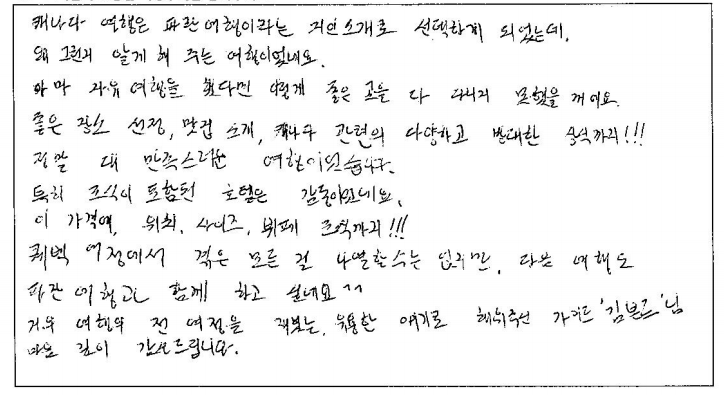 캐나다 여행은 파란여행이라는 지인소개로 선택하게 되었는데,
왜 그런지 알게 해 주는 여행이었네요.
아마 자유 여행을 왔다면 이렇게 좋은 곳을 다 다니지 못했을 꺼에요.
좋은 장소 선정, 맛집 소개, 캐나다 관련의 다양하고 방대한 상식까지!!!
정말 대 만족스러운 여행이었습니다.
특히 조식이 포함된 호텔은 감동이었네요.
이 가격에, 위치, 사이즈, 뷔페 조식까지!!!
퀘벡 여정에서 겪은 모든 걸 나열할수는 없지만, 다음 여행도
파란여행과 함께 하고 싶네요^^
겨울 여행의 전 여정을 재밌는, 유용한 얘기로 채워주신 가이드 님
마음 깊이 감사드립니다.